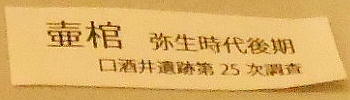 壷棺 弥生時代後期
口酒井遺跡第25次調査